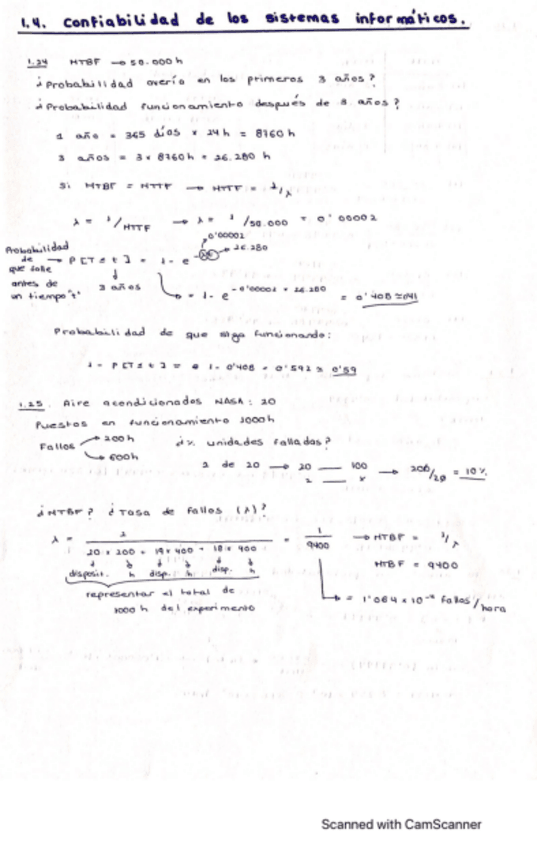 1.4. Confiabilidad de los sistemas informáticos.
1.24 MTBF → 50.000 h
¿Probabilidad avería en los primeros 3 años?
¿Probabilidad funcionamiento después de 3 años?
1 año = 365 días × 24 h = 8760 h
3 años = 3 × 8760 h = 26.280 h
Si MTBF = MTTF → MTTF = 1/λ
λ = 1/MTTF → λ = 1/50.000 = 0'00002
0'00002
26.280
Probabilidad de que falle antes de un tiempo "t" → P[T ≤ t] = 1 - e
3 años
= 1 - e^-0'00002 × 26.280 = 0'408 ≈ 0'41
Probabilidad de que siga funcionando:
1 - P[T ≤ t] = 1 - 0'408 = 0'592 ≈ 0'59
1.25. Aire acondicionados NASA: 20
Puestos en funcionamiento 1000h
Fallos → 200h
→ 600h
¿% unidades falladas?
2 de 20 → 20 — 100 → 200/20 = 10%
2 — x
¿MTBF? ¿Tasa de fallos (λ)?
λ = 2 / 20 × 200 + 19 × 400 + 18 × 400 = 1/9400 → MTBF = 1/λ
disposit. h disp. h disp. h
MTBF = 9400
representar el total de
1000 h del experimento
= 1'064 × 10^-4 fallos/hora
Scanned with CamScanner